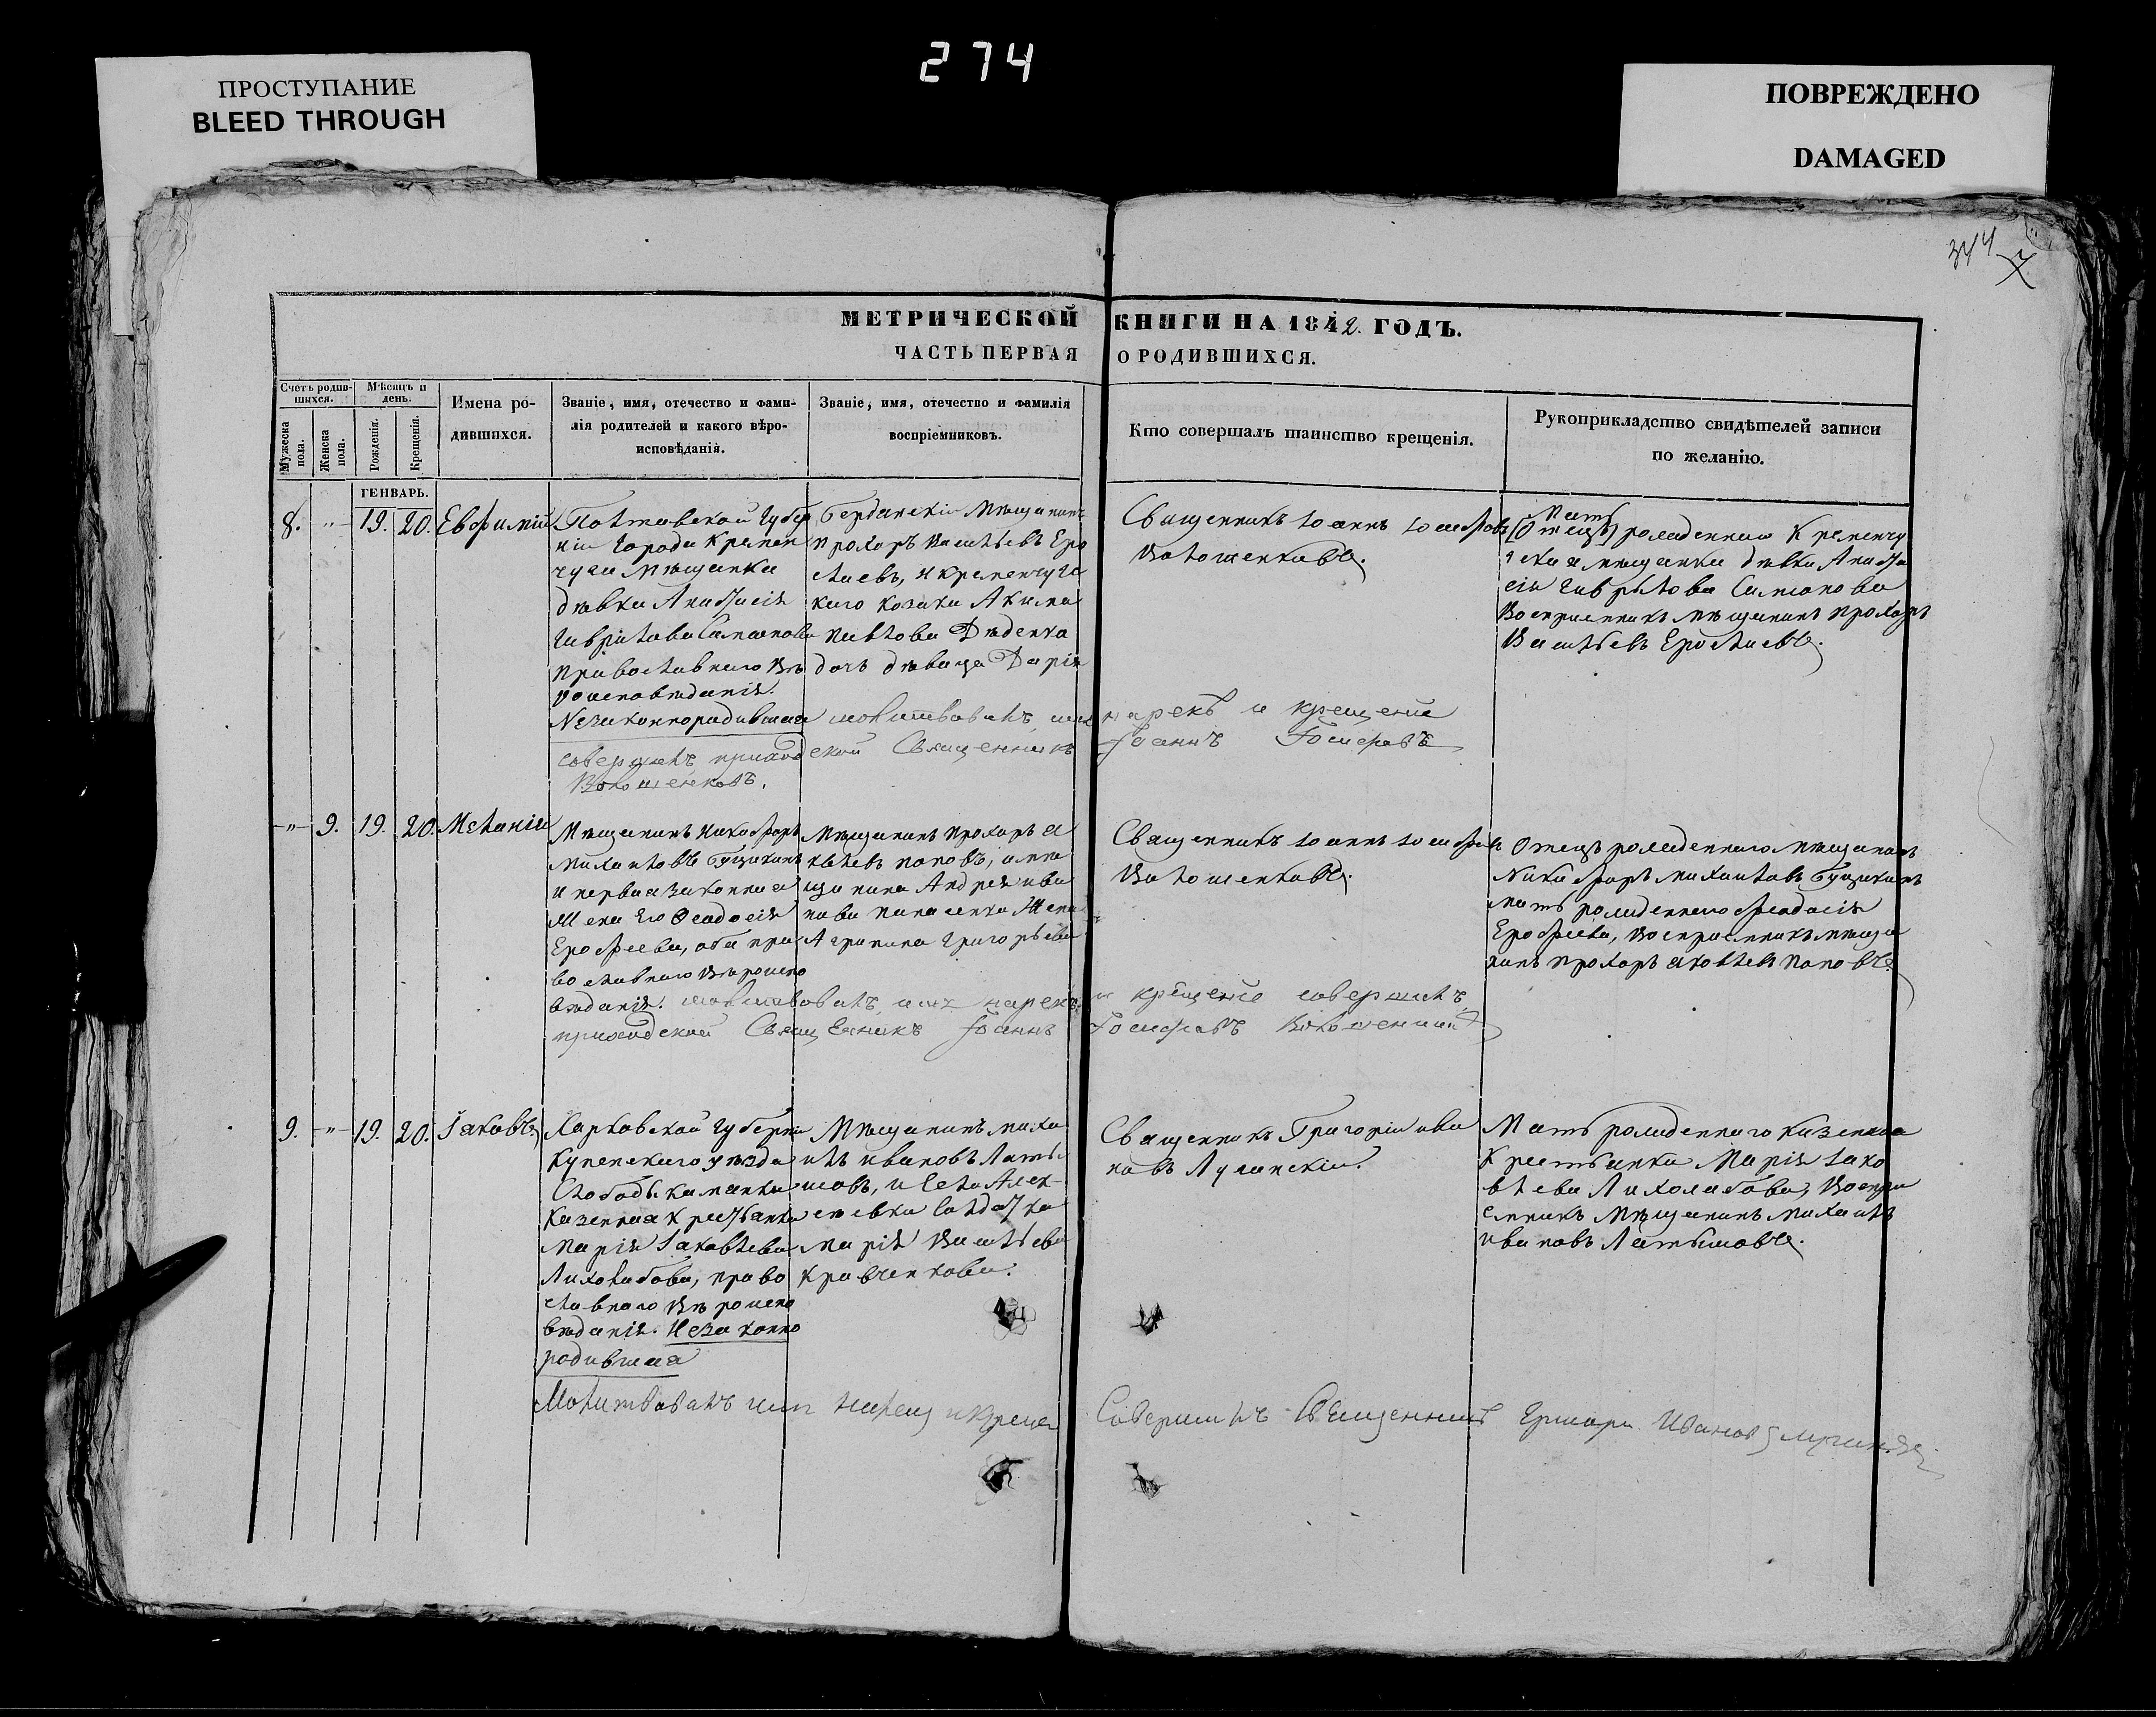 274
ПРОСТУПАНИЕ
BLEED THROUGH
ПОВРЕЖДЕНО
DAMAGED
344
7
МЕТРИЧЕСКОЙ КНИГИ НА 1842. ГОДЪ.
ЧАСТЬ ПЕРВАЯ О РОДИВШИХСЯ.
Счетъ родив-
шихся.
Мужеска пола.
Женска пола.
Мѣсяцъ и
день.
Рожденія.
Крещенія.
Имена ро-
дившихся.
Званіе, имя, отечество и фами-
лія родителей и какого вѣро-
исповѣданія.
Званіе, имя, отечество и фамилія
воспріемниковъ.
Кто совершалъ таинство крещенія.
Рукоприкладство свидѣтелей записи
по желанію.
ГЕНВАРЬ.
8. " 19. 20. Евфимій
Полтавской Губер
ніи города Кремен
чуга мѣщанка
дѣвка Анастасія
Гаврилова
православнаго вѣ
роисповѣданія.
Незаконнорадившая
Бердянскій Мѣщанинъ
Прохоръ Васильевъ Еро
лаевъ, и кременчугс
каго козака Акима
Павлова Дѣденка
дочь дѣвица Дарія
Священникъ Іоаннъ Іосифовъ
Волошенковъ.
Мать
(Отецъ) рожденнаго Кременчу
гская мѣщанка дѣвка Анаста
сія Гаврилова
Воспріемникъ мѣщанинъ Прохоръ
Васильевъ Еролаевъ.
молитвовалъ имя нарекъ и крещеніе
совершилъ приходской Священникъ Іоаннъ Іосифовъ
Волошенковъ.
" 9. 19. 20. Меланія
Мѣщанинъ Никифоръ
Михаиловъ
и первая законная
жена его Феодосія
Ерофеева, оба пра
вославнаго вѣроиспо
вѣданія.
Мѣщанинъ Прохоръ я
ковлевъ Поповъ, и мѣ
щанина Андрея ива
нова жена
Агрипина Григорьева
Священникъ Іоаннъ Іосифовъ
Волошенковъ.
Отецъ рожденнаго мѣщанинъ
Никифоръ Михаиловъ
мать рожденнаго Феодосія
Ерофеева, Воспріемникъ мѣща
нинъ Прохоръ яковлевъ Поповъ.
молитвовалъ имя нарекъ и крещеніе совершилъ
приходской Священникъ Іоаннъ Іосифовъ
9. " 19. 20. Іаковъ
Харьковской Губерніи
Купенскаго уѣзда
Слободы каменки
казенная крестьянка
Марія Іаковлева
Лихолабова, право
славнаго вѣроиспо
вѣданія. Незаконно
родившая
Мѣщанинъ миха
илъ ивановъ Латы
шовъ, и села Алек-
сѣевки солдатка
Марія Васильева
Кравченкова.
Священникъ Григорій ива
новъ Лучанскій.
Мать рожденнаго казенная
крестьянка Марія Іако
влева Лихолабова, Воспрі
емникъ Мѣщанинъ Михаилъ
ивановъ Латышовъ.
Молитвовалъ имя
Совершилъ Священникъ